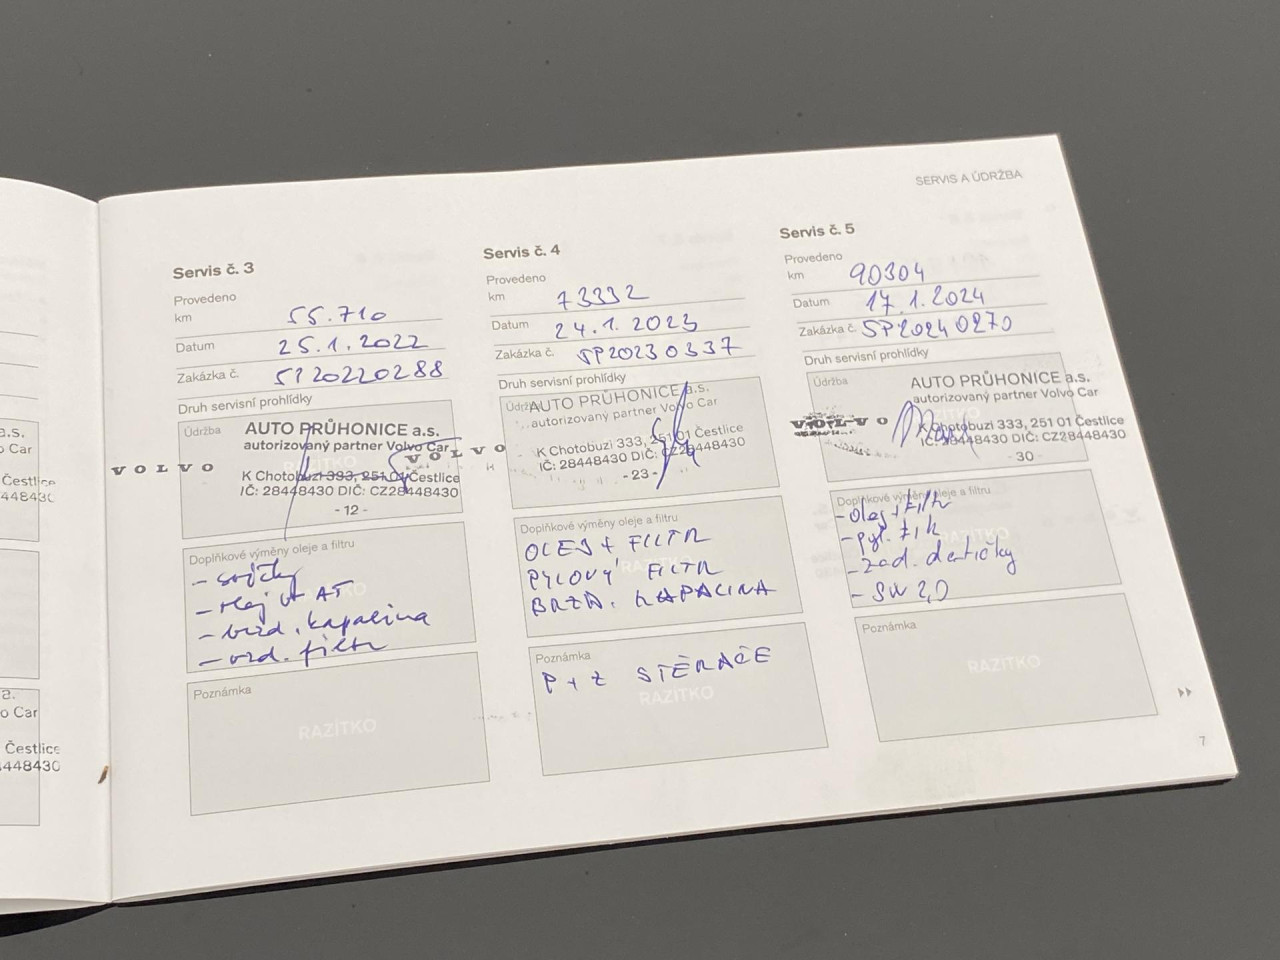 SERVIS A ÚDRŽBA
Servis č. 3
Provedeno
km 55.710
Datum 25.1.2022
Zakázka č. SP20220288
Druh servisní prohlídky
Údržba
AUTO PRŮHONICE a.s.
autorizovaný partner Volvo Car
VOLVO
K Chotobuzi 333, 251 01 Čestlice
IČ: 28448430 DIČ: CZ28448430
- 12 -
Doplňkové výměny oleje a filtru
- svíčky
- olej AT
- brzd. kapalina
- vzd. filtr
Poznámka
RAZÍTKO
Servis č. 4
Provedeno
km 73332
Datum 24.1.2023
Zakázka č. SP20230337
Druh servisní prohlídky
Údržba
AUTO PRŮHONICE a.s.
autorizovaný partner Volvo Car
VOLVO
K Chotobuzi 333, 251 01 Čestlice
IČ: 28448430 DIČ: CZ28448430
- 23 -
Doplňkové výměny oleje a filtru
OLEJ + FILTR
PYLOVÝ FILTR
BRZD. KAPALINA
Poznámka
P + Z STĚRAČE
RAZÍTKO
Servis č. 5
Provedeno
km 90304
Datum 17.1.2024
Zakázka č. SP20240270
Druh servisní prohlídky
Údržba
AUTO PRŮHONICE a.s.
autorizovaný partner Volvo Car
VOLVO
K Chotobuzi 333, 251 01 Čestlice
IČ: 28448430 DIČ: CZ28448430
- 30 -
Doplňkové výměny oleje a filtru
- Olej + filtr
- pyl. filtr
- zad. destičky
- SW
Poznámka
RAZÍTKO
7
a.s.
o Car
Čestlice
448430
a.
vo Car
Čestlice
448430